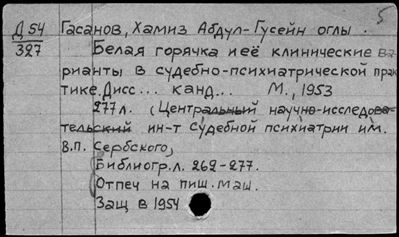 5
Д 54 Гасанов, Хамиз Абдул-Гусейн оглы.
327 Белая горячка и её клинические ва-
рианты в судебно-психиатрической прак
тике. Дисс... канд... М., 1953
277л. (Центральный научно-исследова-
тельский ин-т судебной психиатрии им.
В.П. Сербского)
Библиогр. л. 262-277.
Отпеч на пиш. маш.
Защ в 1954